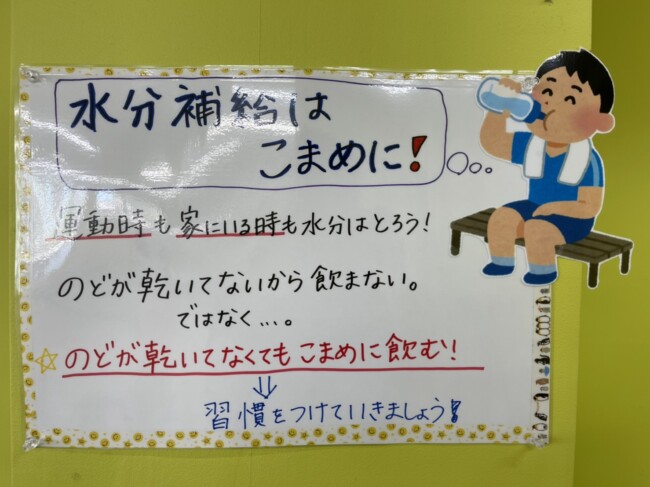 水分補給は
こまめに!
運動時も家にいる時も水分はとろう!
のどが乾いてないから飲まない。
ではなく...。
☆のどが乾いてなくてもこまめに飲む!
⇓
習慣をつけていきましょう!